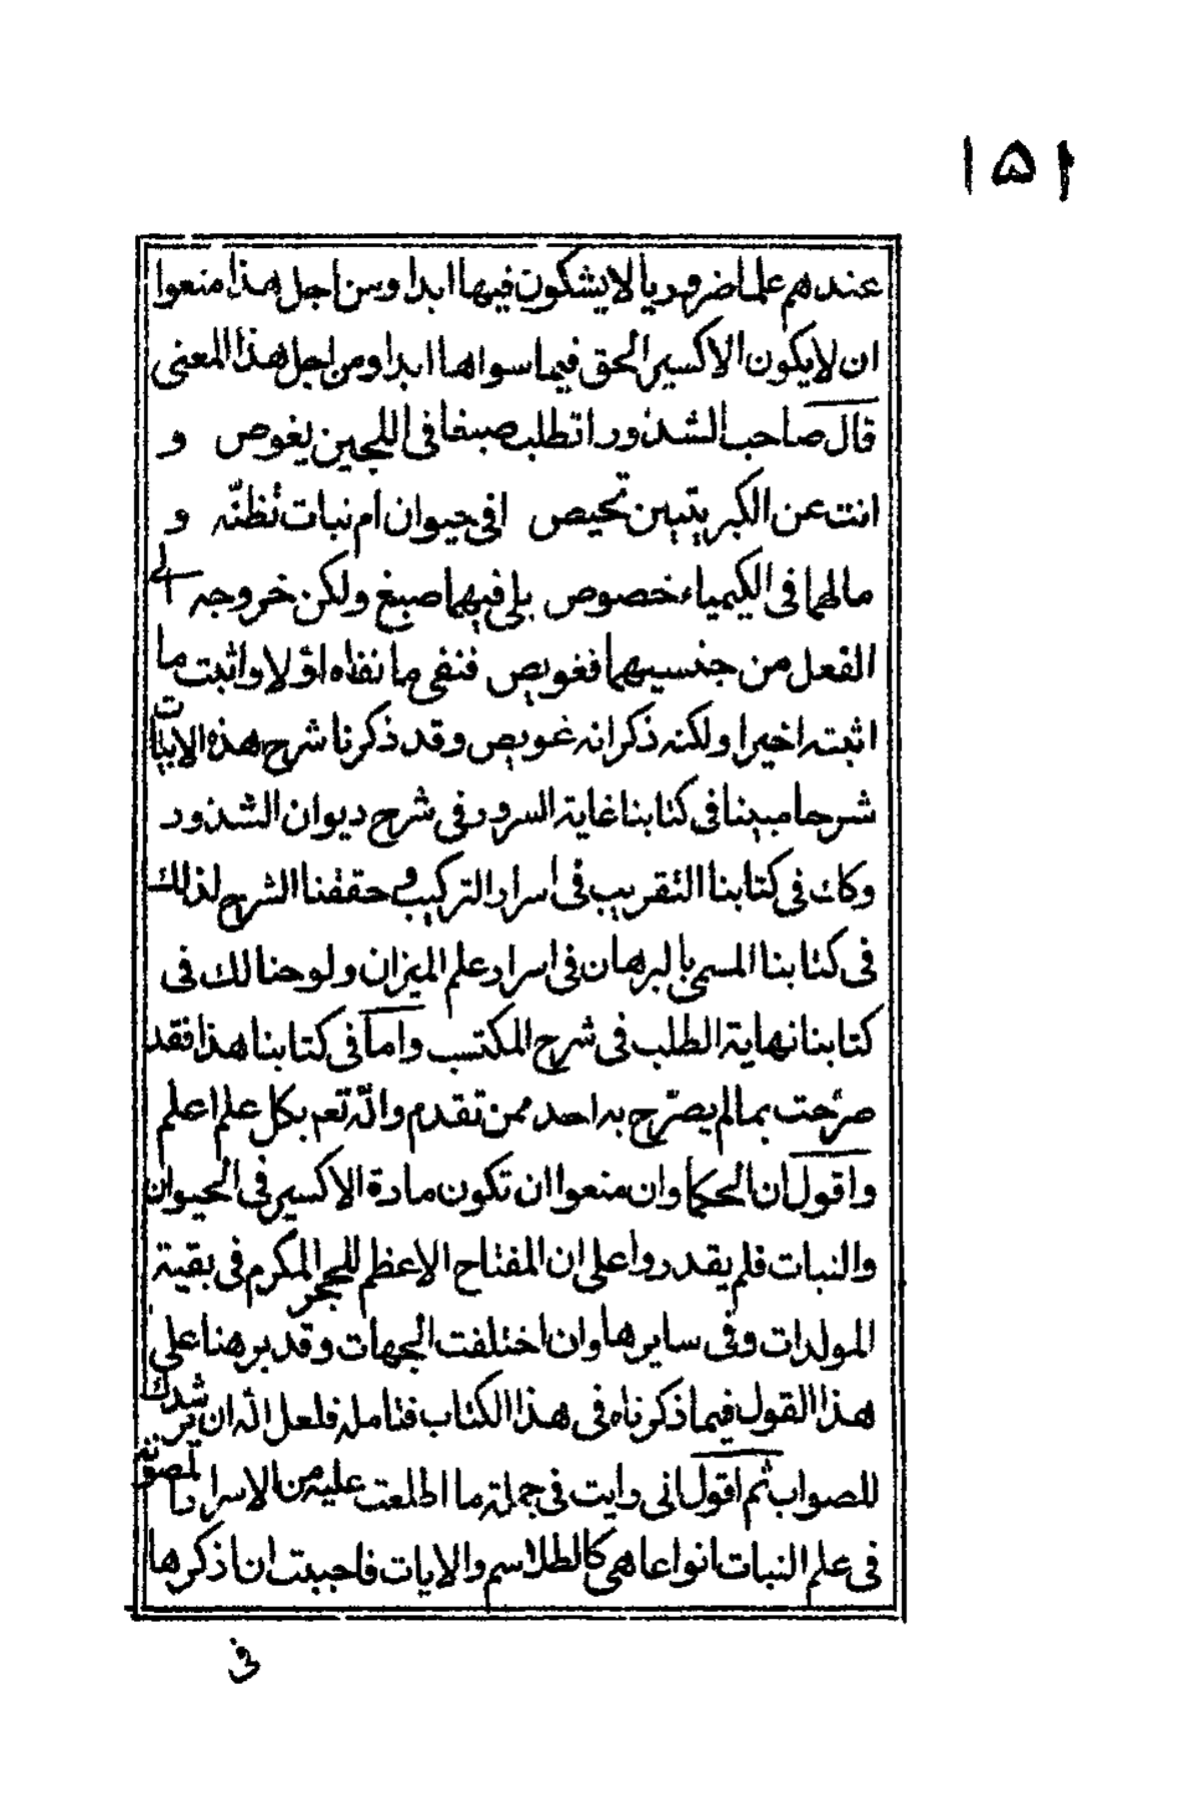 ١٥١
عندهم علما ضروريا لا يشكون فيها ابدا ومن اجل هذا منعوا
ان لا يكون الاكسير الحق فيما سواها ابدا ومن اجل هذا المعنى
قال صاحب الشذور اتطلب صبغا فى اللجين يغوص و
انت عن الكبريتين تحيص افى حيوان ام نبات تُظنّه و
مالهما فى الكيمياء خصوص بلى فيهما صبغ ولكن خروجه الى
الفعل من جنسيهما فغويص فنفى ما نفاه اوّلا واثبت ما
اثبته اخيرا ولكنه ذكر انه غويص وقد ذكرنا شرح هذه الابيات
شرحا مبينا فى كتابنا غاية السرور فى شرح ديوان الشذور
وكك فى كتابنا التقريب فى اسرار التركيب و حققنا الشرح لذلك
فى كتابنا المسمى بالبرهان فى اسرار علم الميزان ولوحنا لك فى
كتابنا نهاية الطلب فى شرح المكتسب واما فى كتابنا هذا فقد
صرّحت بمالم يصرّح به احد ممن تقدم والله تعم بكل علم اعلم
واقول ان الحكما وان منعوا ان تكون مادة الاكسير فى الحيوان
والنبات فلم يقدروا على ان المفتاح الاعظم للحجر المكرم فى بقية
المولدات وفى سايرها وان اختلفت الجهات وقد برهنا على
هذا القول فيما ذكرناه فى هذا الكتاب فتامله فلعل الله ان يرشدك
للصواب ثم اقول انى رايت فى جملة ما اطلعت عليه من الاسرار المصونة
فى علم النبات انواعا هى كالطلاسم والايات فاحببت ان اذكرها
فى